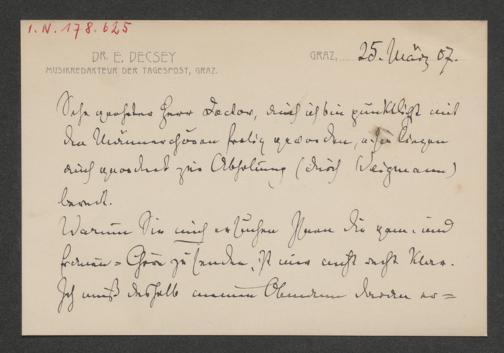 I.N. 178.625
DR. E. DECSEY
MUSIKREDAKTEUR DER TAGESPOST, GRAZ.
GRAZ, 25. März 07.
Sehr geehrter Herr Doctor, auch ich bin pünktlichst mit
den Männerchören fertig geworden, liegen
auch geordnet zur Abholung (durch Weigmann)
bereit.
Warum Sie mich ersuchen Ihnen die gem. und
Frauen=Chöre zu senden, ist mir nicht recht klar.
Ich muß deshalb meinen Obmann daran er=